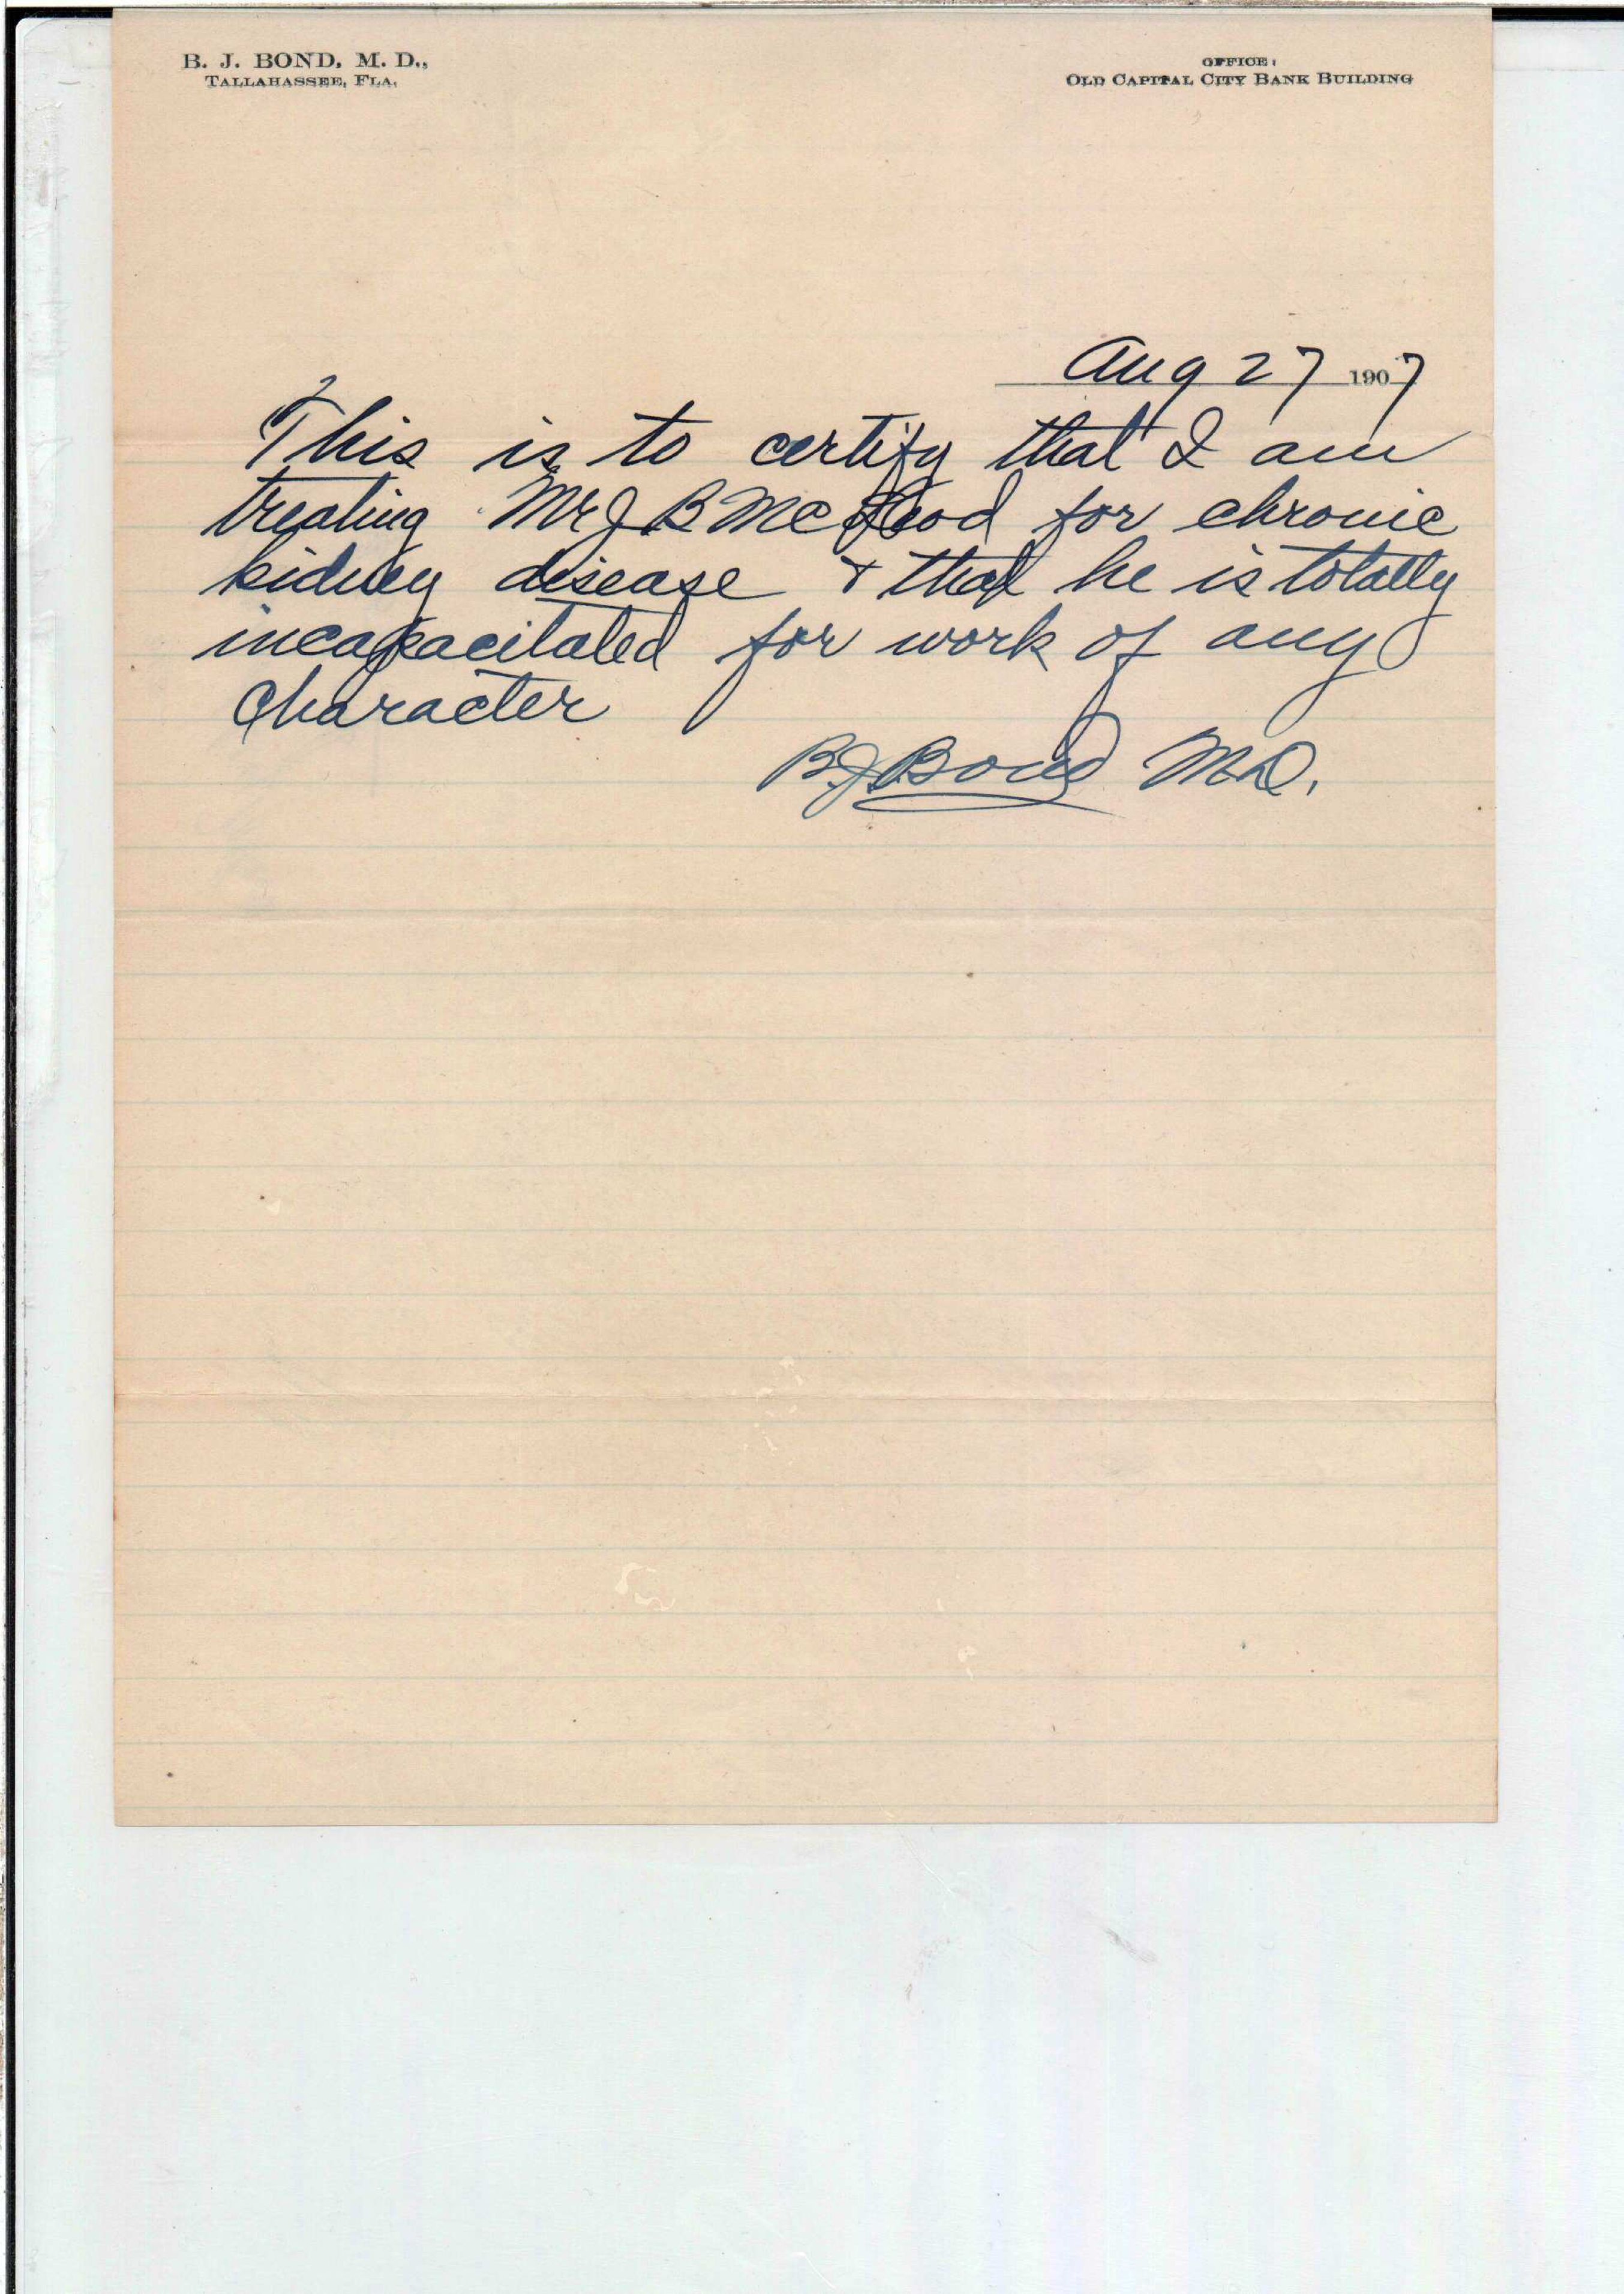 B. J. BOND, M. D.,
TALLAHASSEE, FLA.
OFFICE:
OLD CAPITAL CITY BANK BUILDING
Aug 27 1907
This is to certify that I am
treating Mr J B McLeod for chronic
kidney disease & that he is totally
incapacitated for work of any
Character
B. J. Bond M.D.